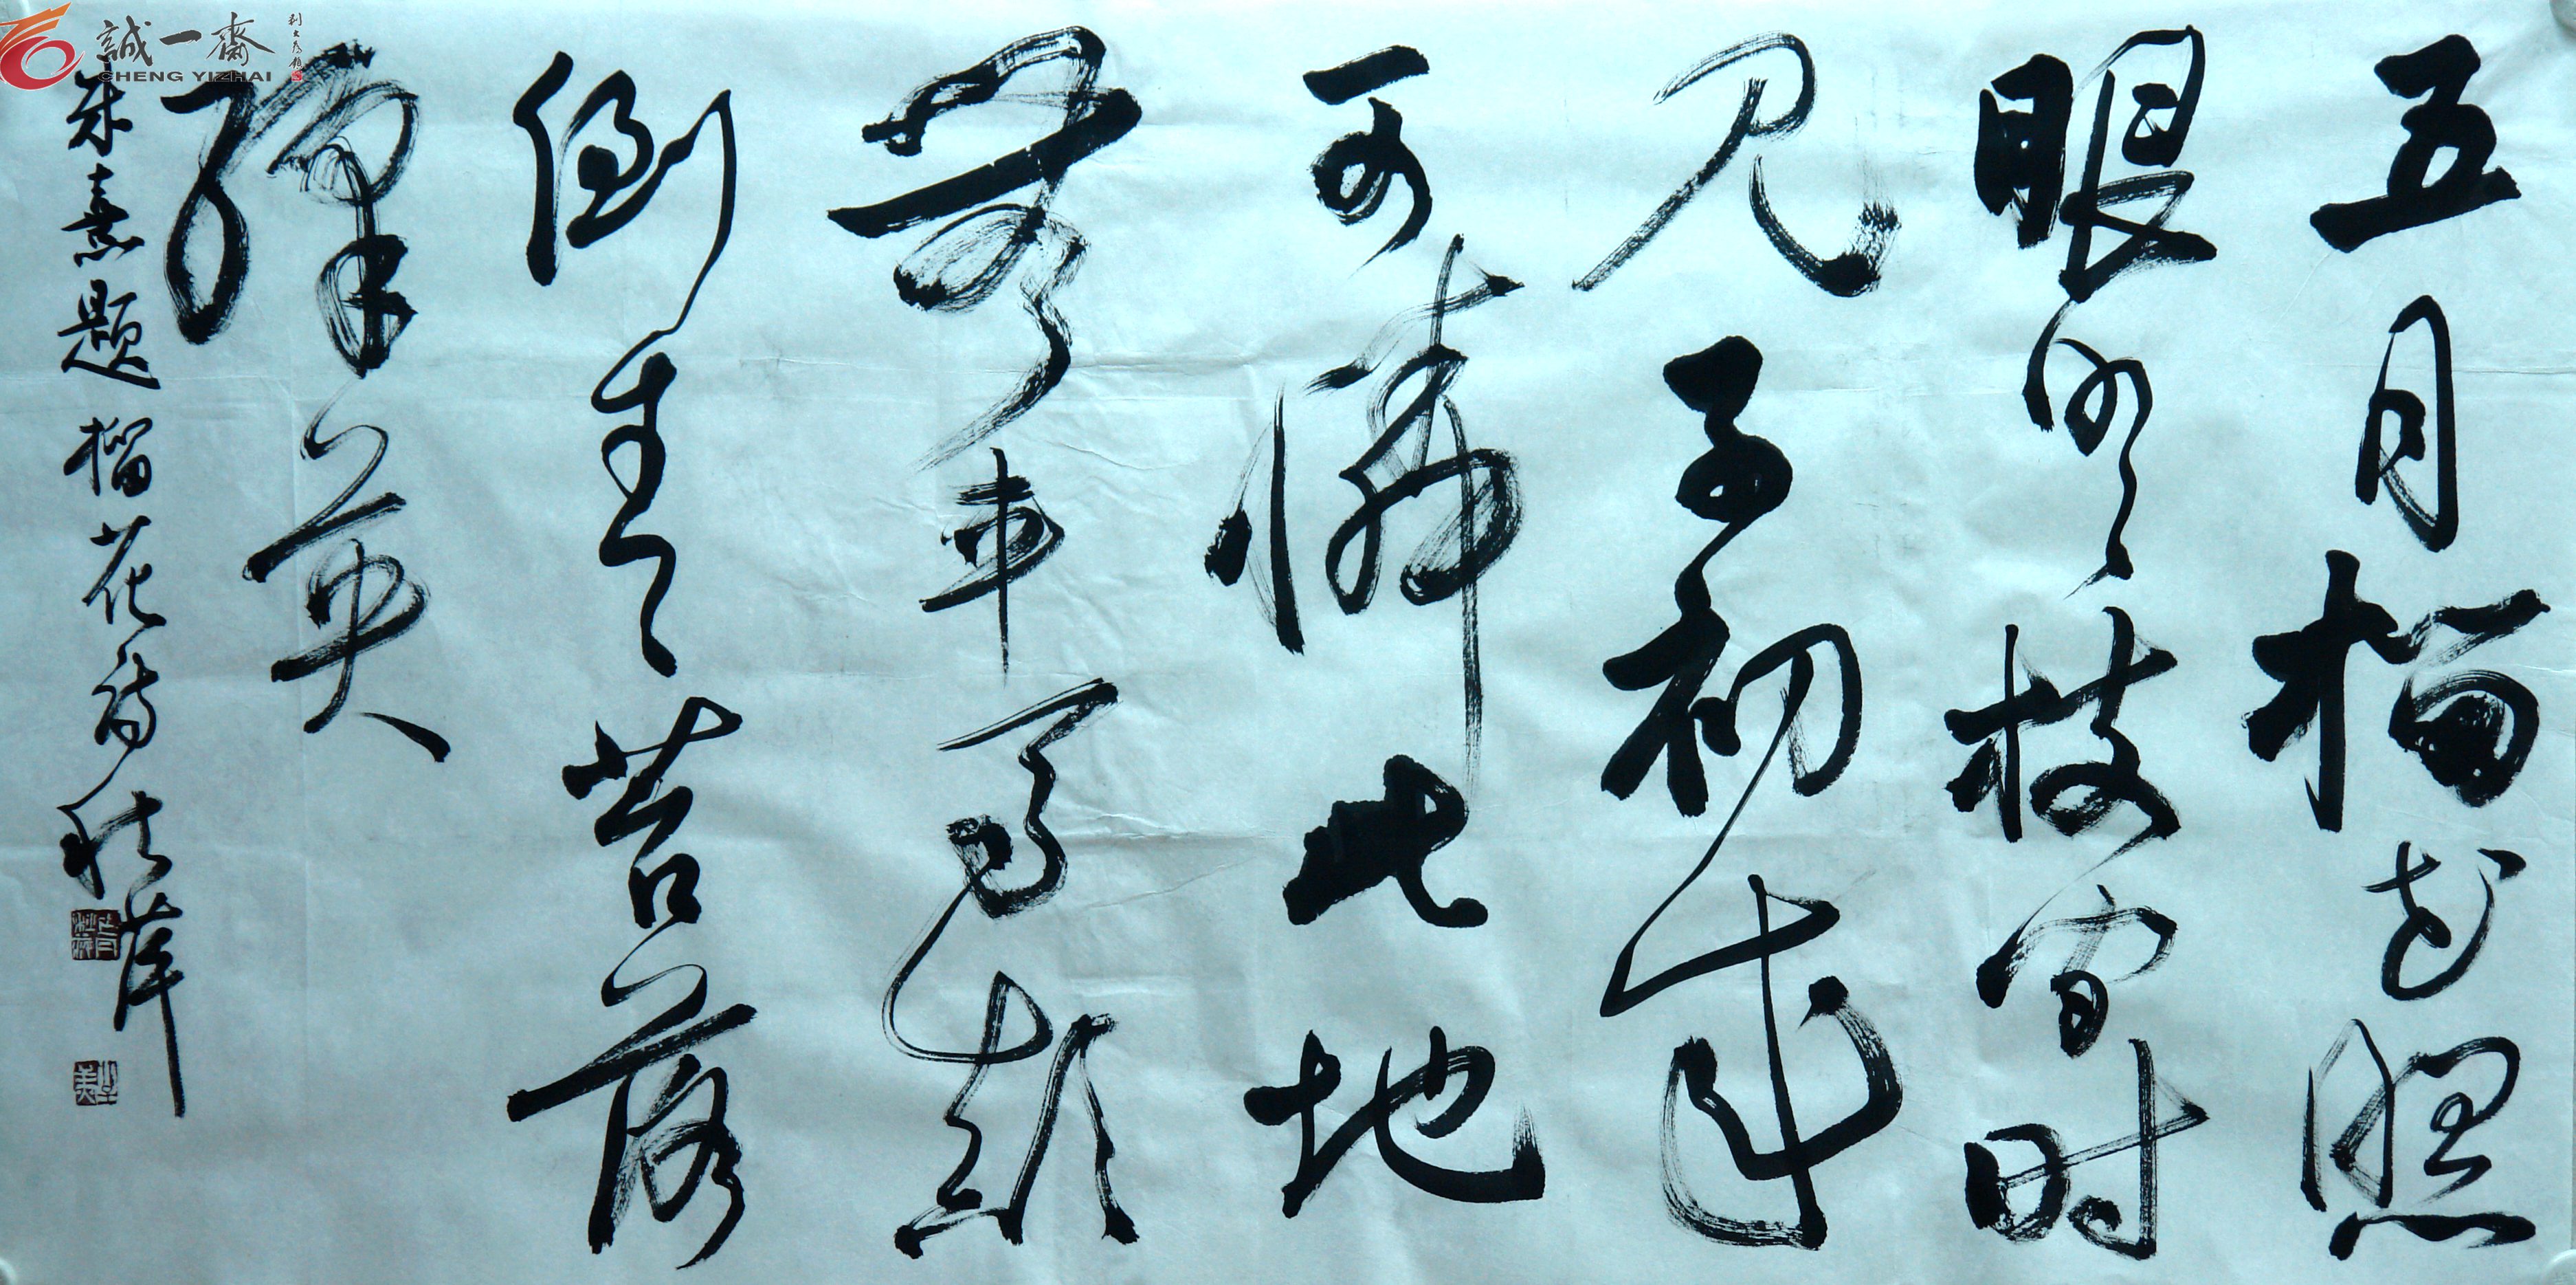 五月榴花照
眼明枝间时
见子初成
可憐此地
無車馬顛
倒青苔落
绛英
朱熹题榴花诗
誠一齋
CHENG YIZHAI